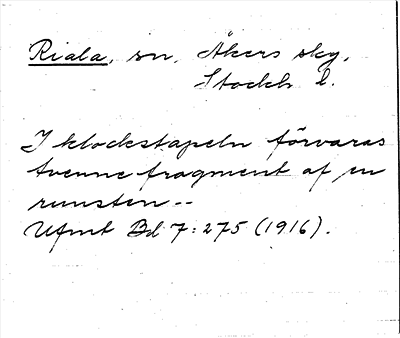 Riala, sn, Åkers sky,
Stockh l.
I klockstapeln förvaras
tvenne fragment af en
runsten --
Ufmt Bd 7:275 (1916).